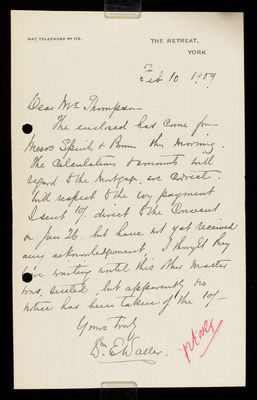 NAT. TELEPHONE Nº 112.
THE RETREAT,
YORK
Feb 10 1909
Dear Mr Thompson
The enclosed has come from
Messrs Spink & Brown this morning.
The calculations & amounts with
regard to the mortgage are correct.
With respect to the 10/- payment
I sent 10/- direct to the Convent
on Jan 26. but have not yet received
any acknowledgement, I thought they
were waiting until this other matter
was settled but apparently no
notice has been taken of the 10/-
Yours truly
Wm E Waller.